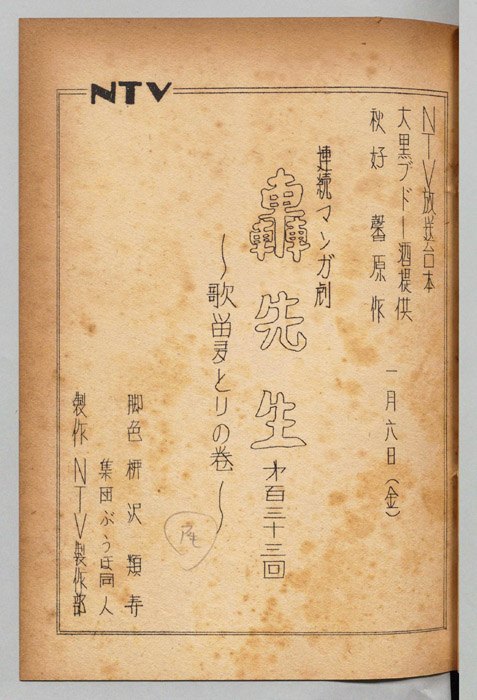 NTV
NTV放送台本
大黒ブドー酒提供
秋好 馨原作
一月六日(金)
連続マンガ劇
轟先生 才百三十三回
〜歌留多とりの巻〜
脚色 柳沢類寿
集団ぶうほ同人
製作 NTV製作部